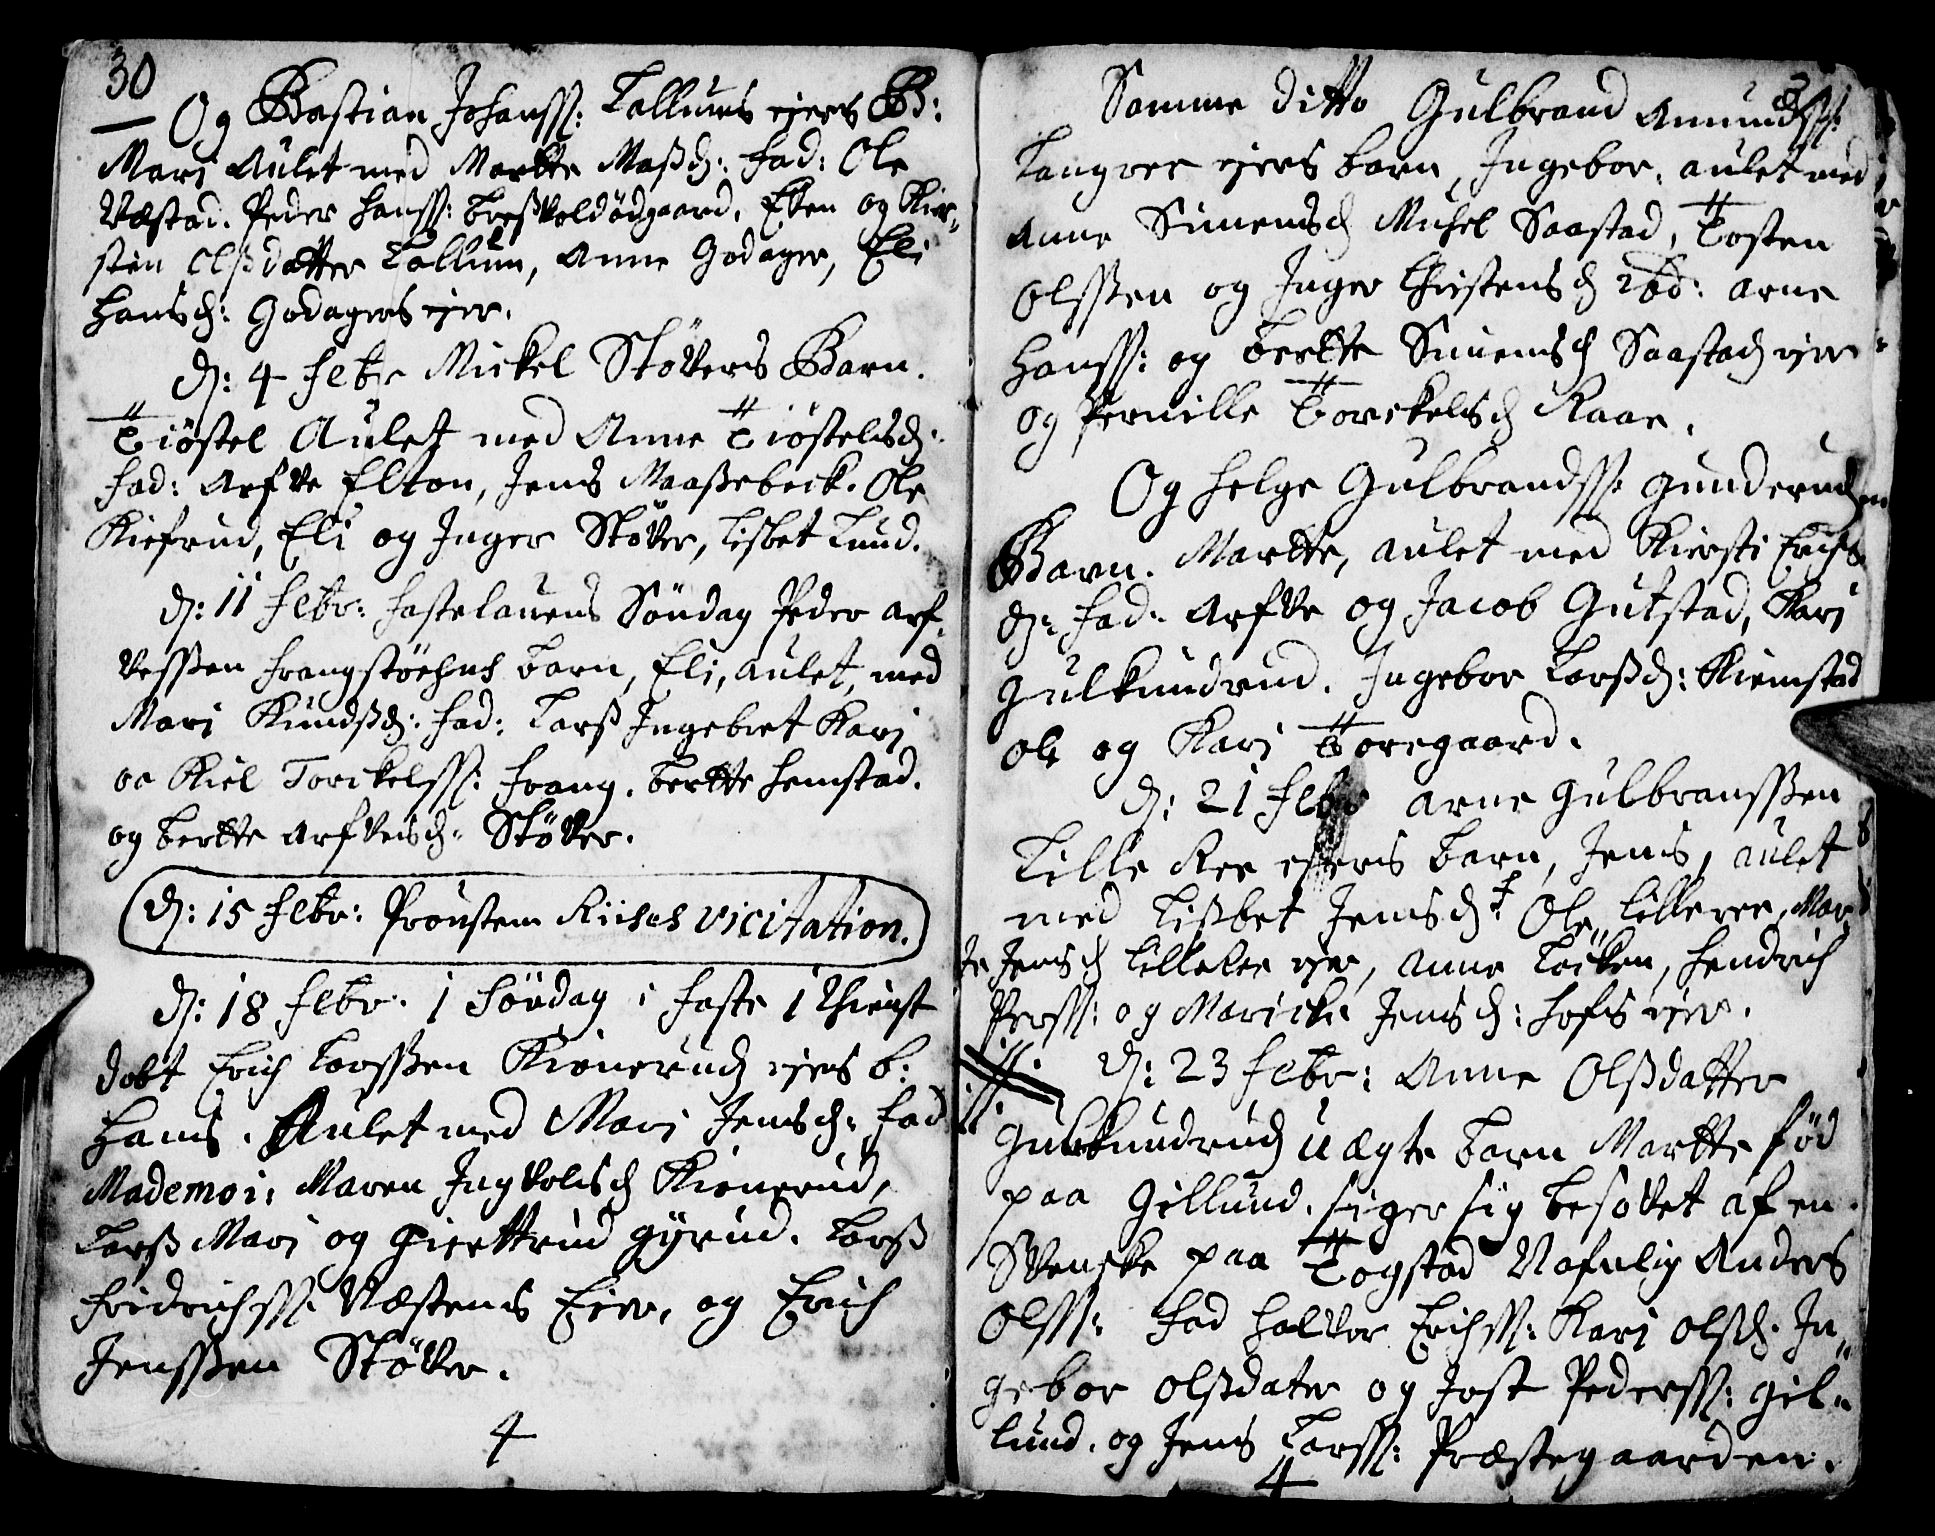 30
Og Bastian Johanss: Lallums ejers B:
Mari Aulet med Marthe Maßd: fad: Ole
Væstad. Peder Hanss: Eben og Kier-
sten Olßdatter Lallum, Anne Godager, Eli
Hansd: Godagers ejer.
D: 4 Febr Mickel Støvers Barn.
Tiöstel Aulet med Anne Tiöstelsd:
fad: Arfve Elton, Jens Maaßebeck. Ole
Kiefrud, Eli og Inger Støver, Lisbet Lund.
D: 11 Febr: fastelauens Söndag Peder Arf-
vessßen barn, Eli, aulet, med
Mari Knudßd: fad: Larß Ingebret Kari
oc Kiel Torckelss: frang. Berthe Hemstad.
og Berthe Arfvesd: Støver.
D: 15 Febr: Proustens Riises vicitation.
D: 18 Febr. 1 Söndag i faste i Thienst
döbt Erich Larssßen Kionerud ejers b:
Hans. Aulet med Mari Jensd: fad
Mademoi: Maren Ingvolsd Kionerud,
Larß Mari og Giertrud Gÿrud. Larß
Fridrichss: Næstens Ejer, og Erich
Jenssßen Støver.
4
Samme ditto Gulbrand Amundss:
Langree ejers barn, Ingebor, aulet med
Anne Simensd Michel Saastad, Tosten
Olssßen og Inger Christensd ibd: Arne
Hanss: og Berthe Simensd Saastad ejer
og Pernille Torckelsd Raae.
Og Helge Gulbrandss: Gunderud
Barn. Marthe, aulet med Kiersti Erichs
d: fad: Arfve og Jacob Gutstad, Kari
Gulknudrud. Ingebor Larßd: Kiemstad
ole og Kari Toregaard.
D: 21 Febr Arne Gulbranssßen
Lille Ree ejers barn, Jens, aulet
med Lißbet Jensd: f Ole Lilleree, Mar
te Jensd Lilleree ejer, Anne Løcken, Hendrich
Perss: og Maricke Jensd: Hofs ejer.
D: 23 Febr: Anne Olßdatter
Gulknudrud uægte barn Marthe föd
paa Gillund. siger sig besövet af en
Svenske paa Togstad Nafnlig Anders
Olss: fad Halvor Erichss: Kari olßd. In„
gebor olßdater og Jost Pederss: Gil„
lund. og Jens Larss: Præstegaarden.
4